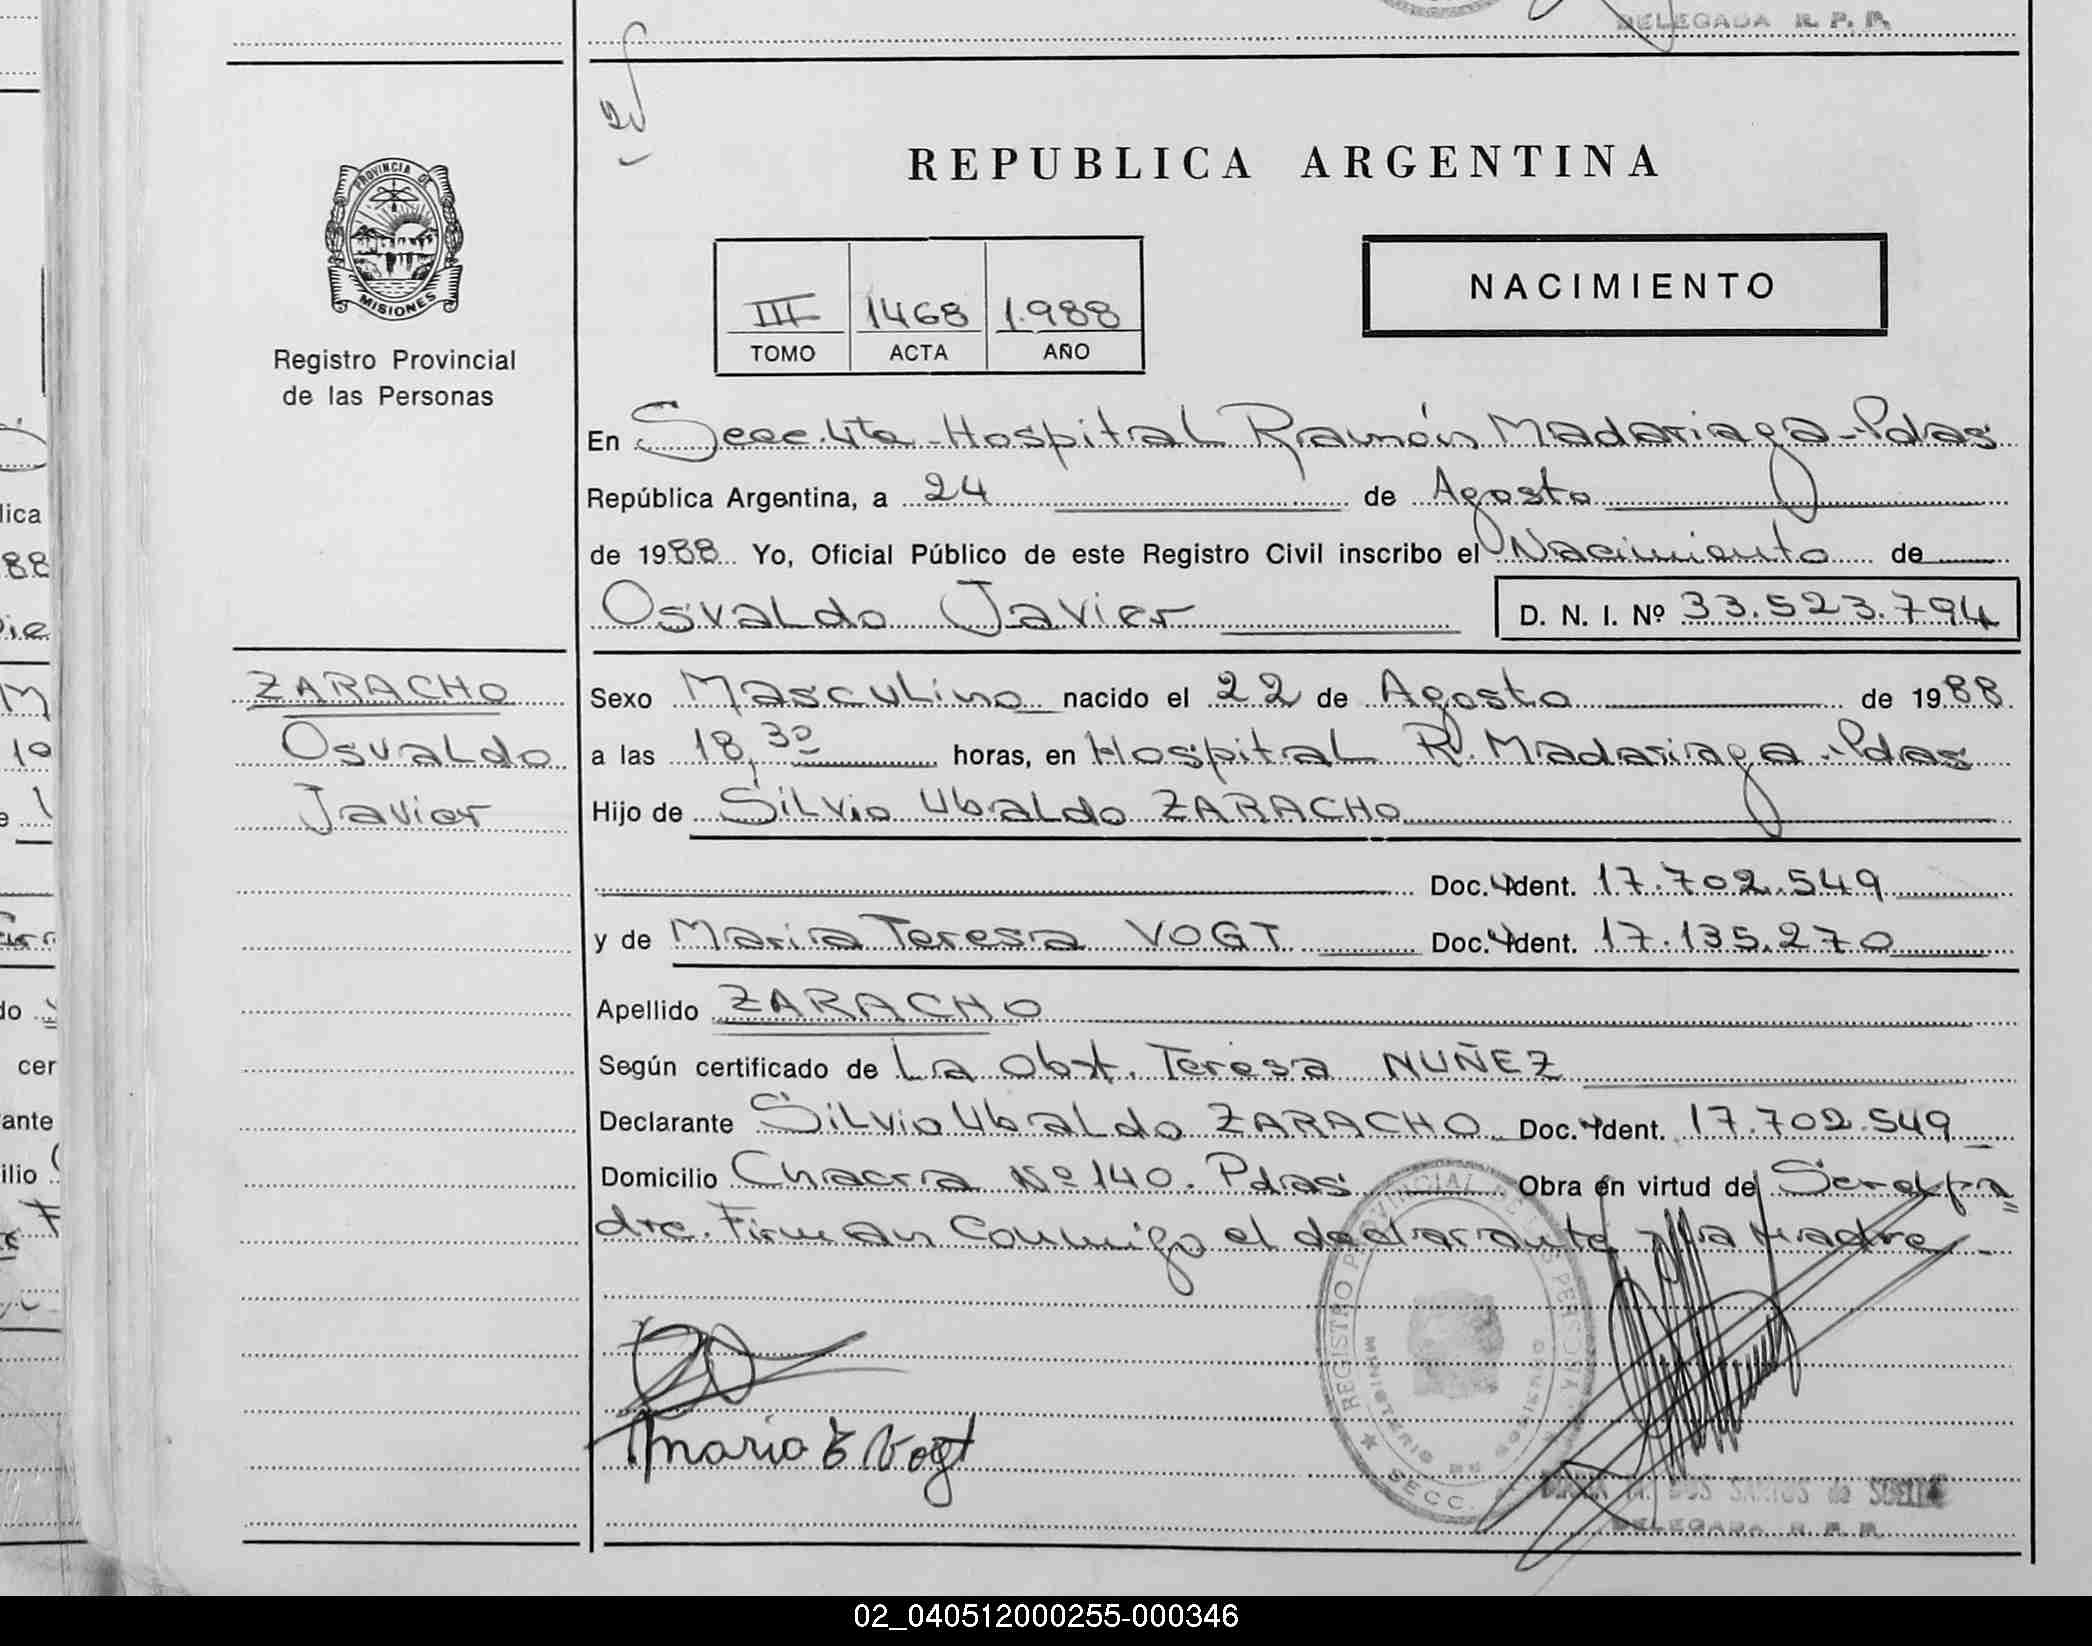 DELEGADA R. P. P.
REPUBLICA ARGENTINA
PROVINCIA DE
MISIONES
Registro Provincial
de las Personas
III 1468 1.988
TOMO ACTA AÑO
NACIMIENTO
En Secc. 4ta - Hospital Ramón Madariaga - Pdas
República Argentina, a 24 de Agosto
de 1988 Yo, Oficial Público de este Registro Civil inscribo el Nacimiento de
Osvaldo Javier D. N. I. Nº 33.523.794
ZARACHO
Osvaldo
Javier
Sexo Masculino nacido el 22 de Agosto de 1988
a las 18,30 horas, en Hospital R. Madariaga - Pdas
Hijo de Silvio Ubaldo ZARACHO
Doc. Ident. 17.702.549
y de Maria Teresa VOGT Doc. Ident. 17.135.270
Apellido ZARACHO
Según certificado de La Obst. Teresa NUÑEZ
Declarante Silvio Ubaldo ZARACHO Doc. Ident. 17.702.549
Domicilio Chacra Nº 140. Pdas Obra en virtud de Ser el pa=
dre. Firman Conmigo el declarante y la Madre.-
REGISTRO PROVINCIAL DE LAS PERSONAS
MINISTERIO DE GOBIERNO
SECC.
Maria T Vogt
M. DOS SANTOS de
DELEGADA R. P. P.
02_040512000255-000346